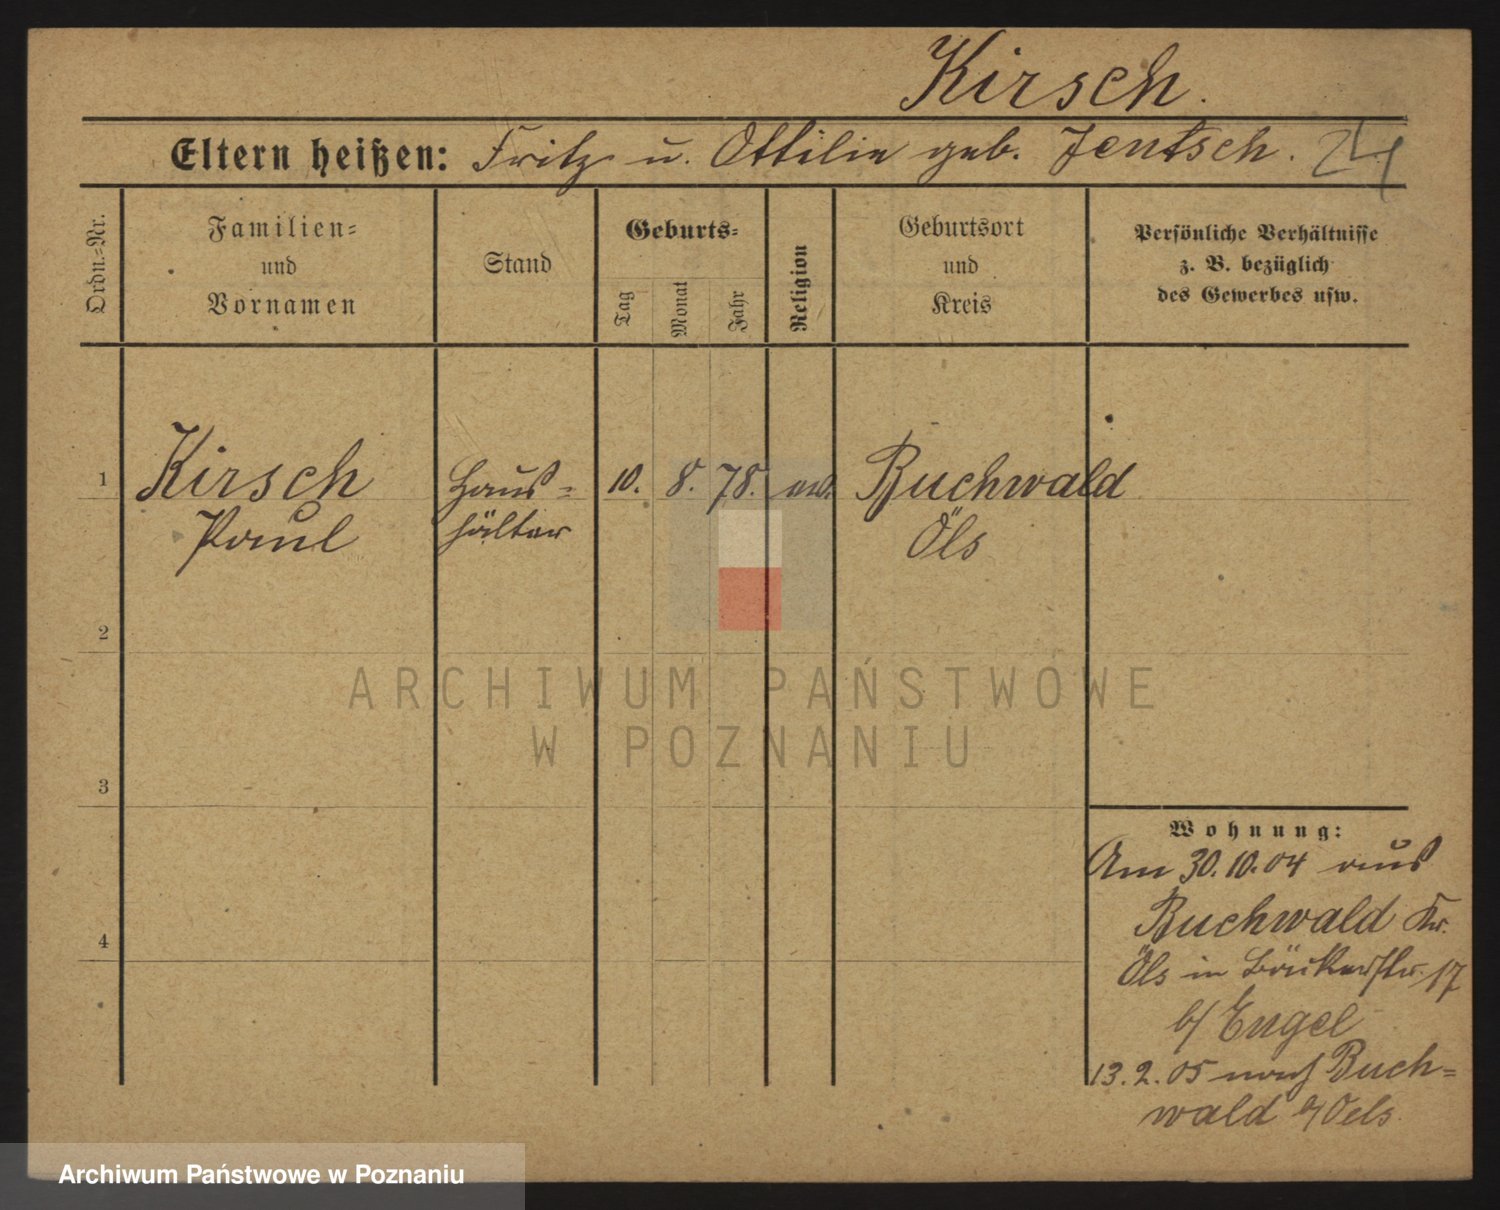 Kirsch.
Eltern heißen: Fritz u. Ottilie geb. Jentsch. 24
Ordn.-Nr.
Familien-
und
Vornamen
Stand
Geburts-
Tag
Monat
Jahr
Religion
Geburtsort
und
Kreis
Persönliche Verhältnisse
z. B. bezüglich
des Gewerbes usw.
1 Kirsch Haus- 10. 8. 78. ev. Buchwald
Paul hälter Öls
2
3
4
ARCHIWUM PAŃSTWOWE
W POZNANIU
Wohnung:
Am 30.10.04 aus
Buchwald Kr.
Öls in Bäckerstr. 17
b/ Engel
13.2.05 nach Buch-
wald b/ Oels.
Archiwum Państwowe w Poznaniu